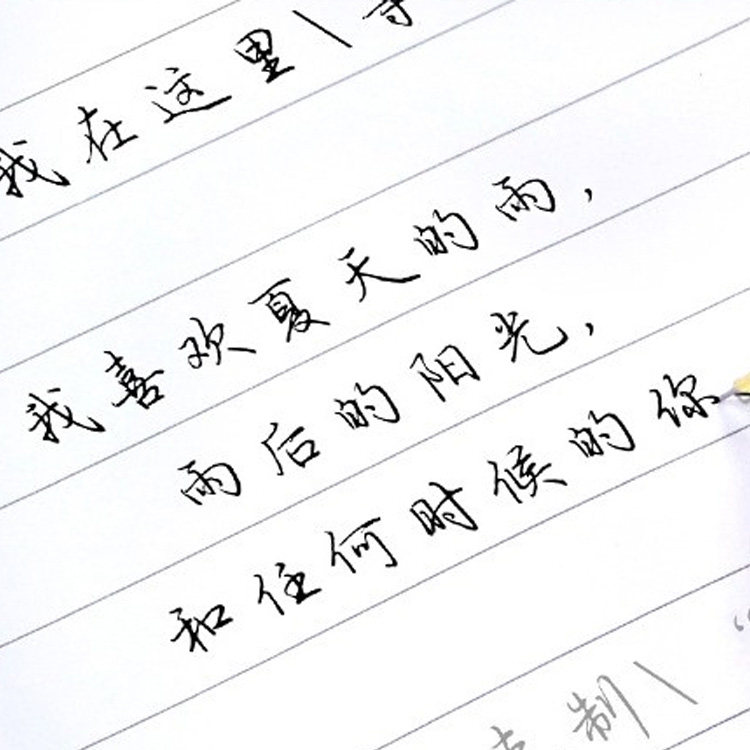 我在这里\
我喜欢夏天的雨,
雨后的阳光,
和任何时候的你
制\
“